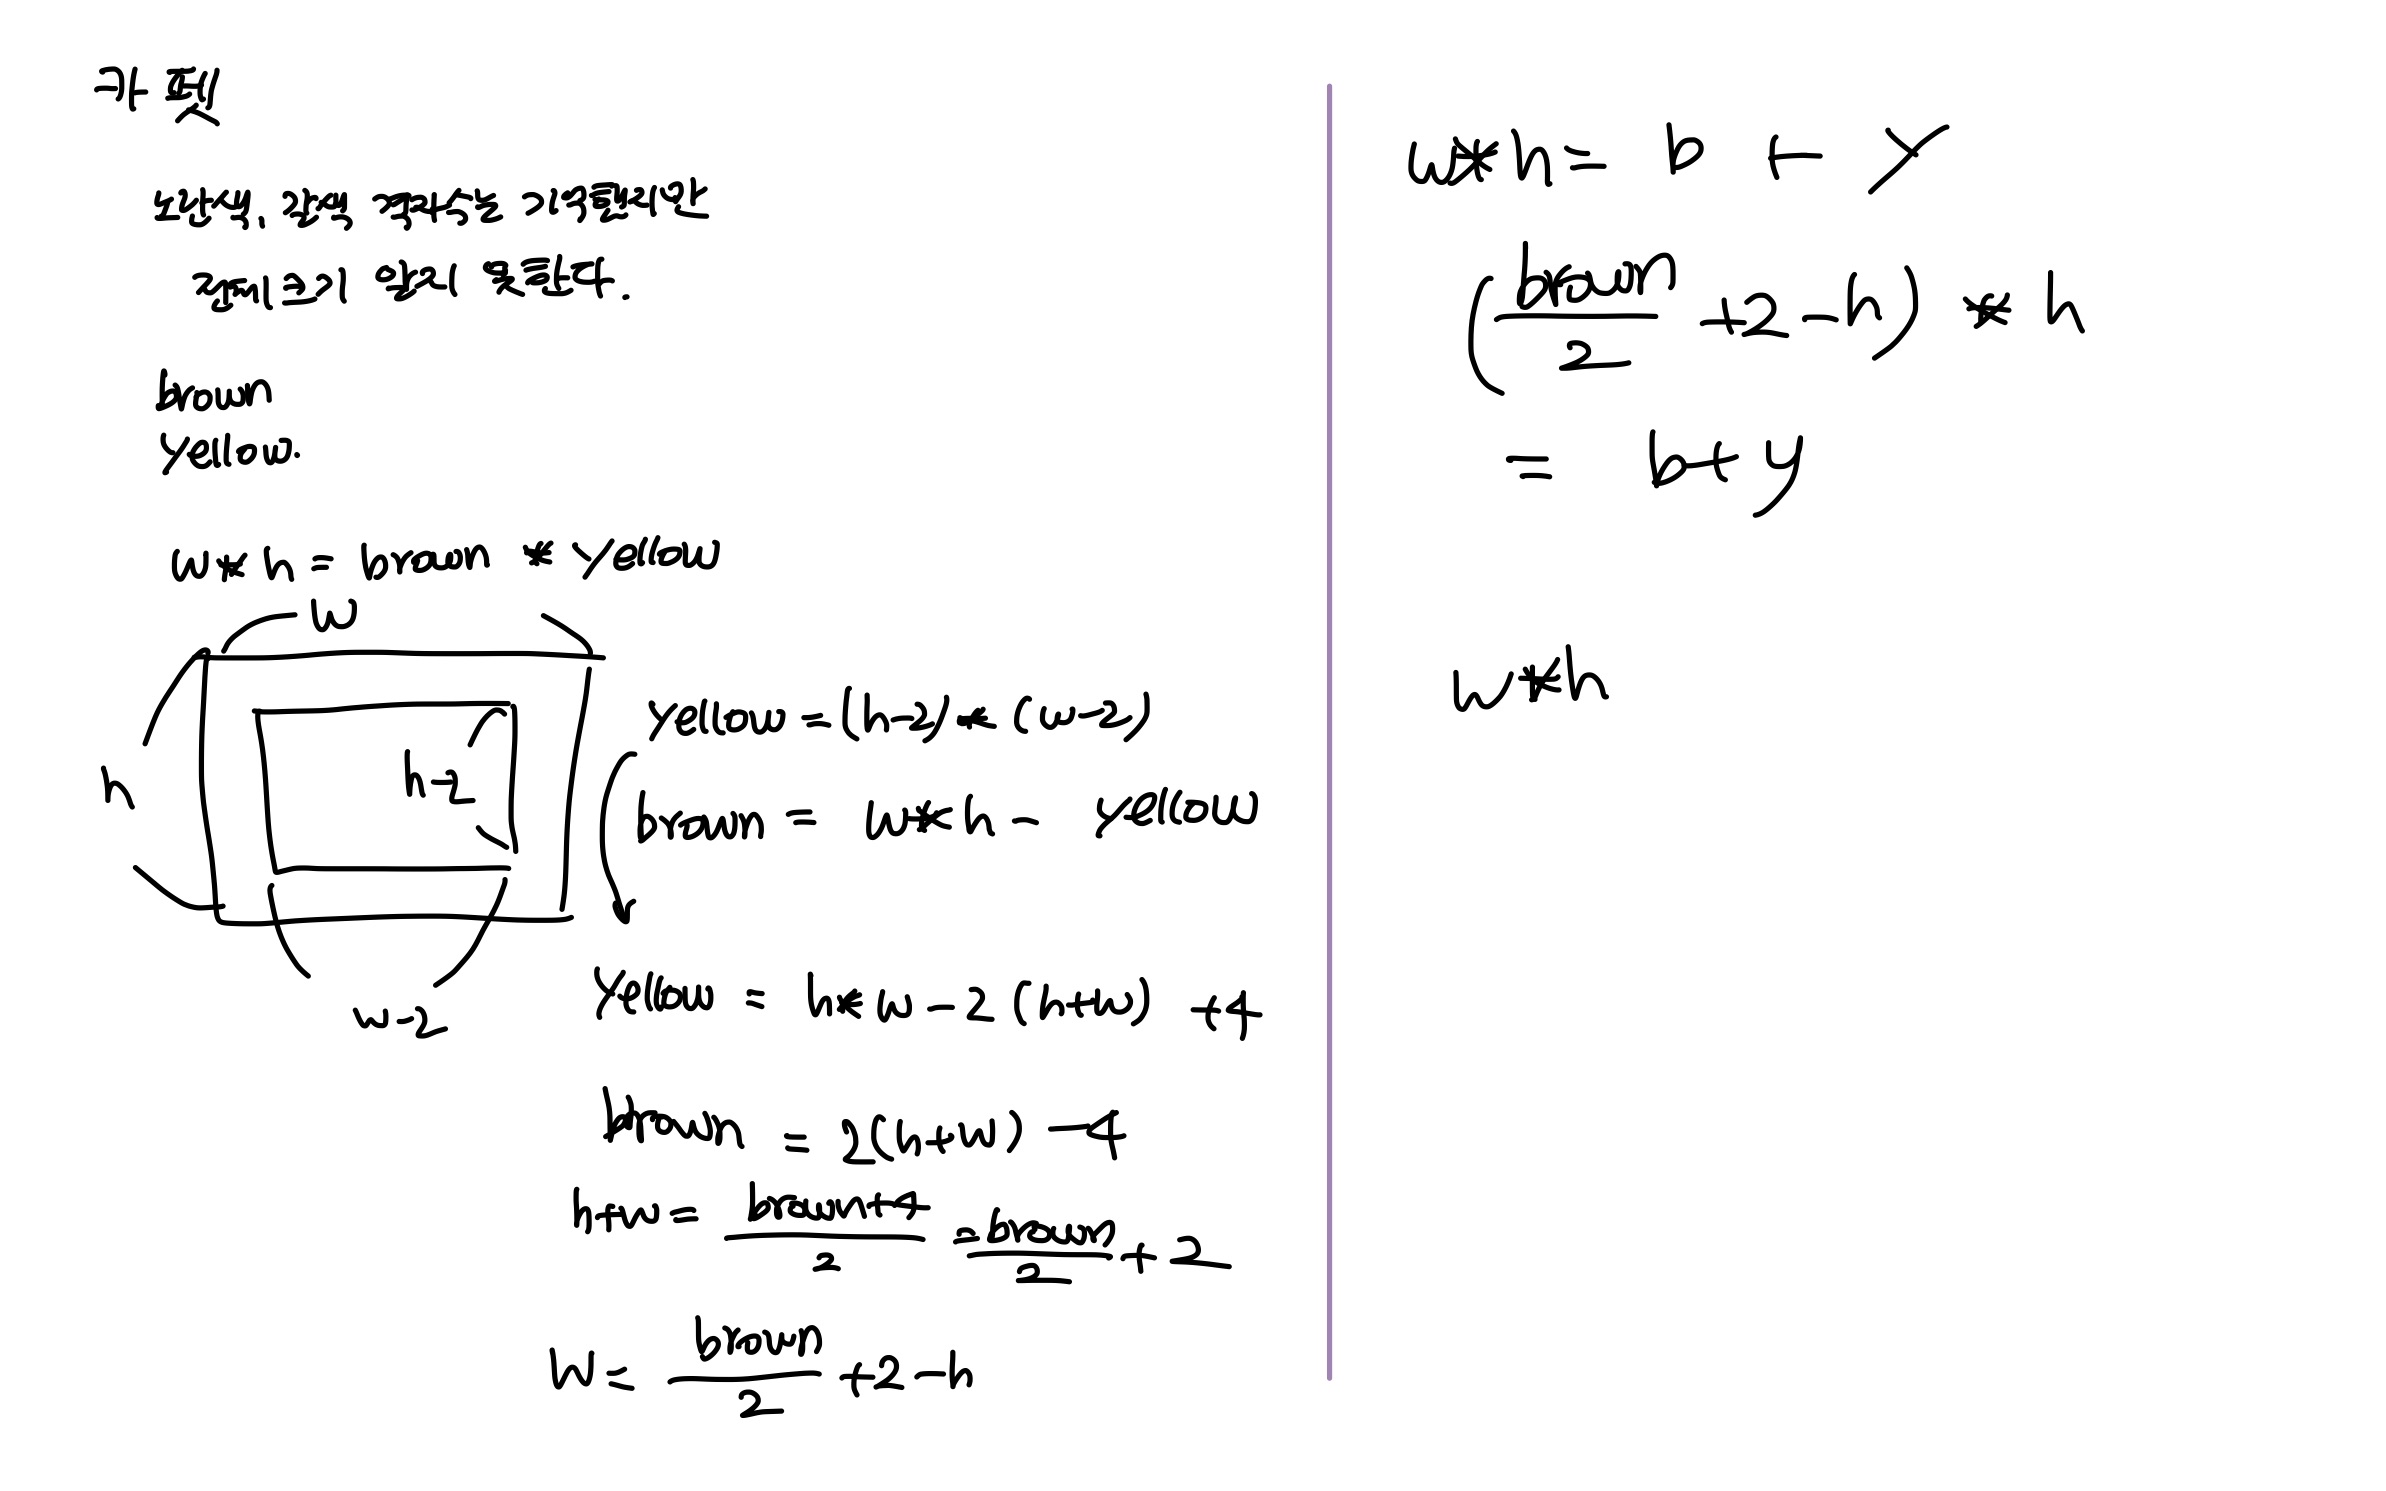 카펫
노란색, 갈색 격자수는 기억했지만
전체크기 알아내 못했다.
brown
yellow.
w*h = brown * yellow
w
h
h-2
w-2
yellow = (h-2) * (w-2)
brown = w*h - yellow
yellow = h*w - 2(h+w) + 4
brown = 2(h+w) - 4
h+w = brown+4 / 2 = brown / 2 + 2
w = brown / 2 + 2 - h
w*h = b + y
(brown / 2 + 2 - h) * h
= b + y
w*h